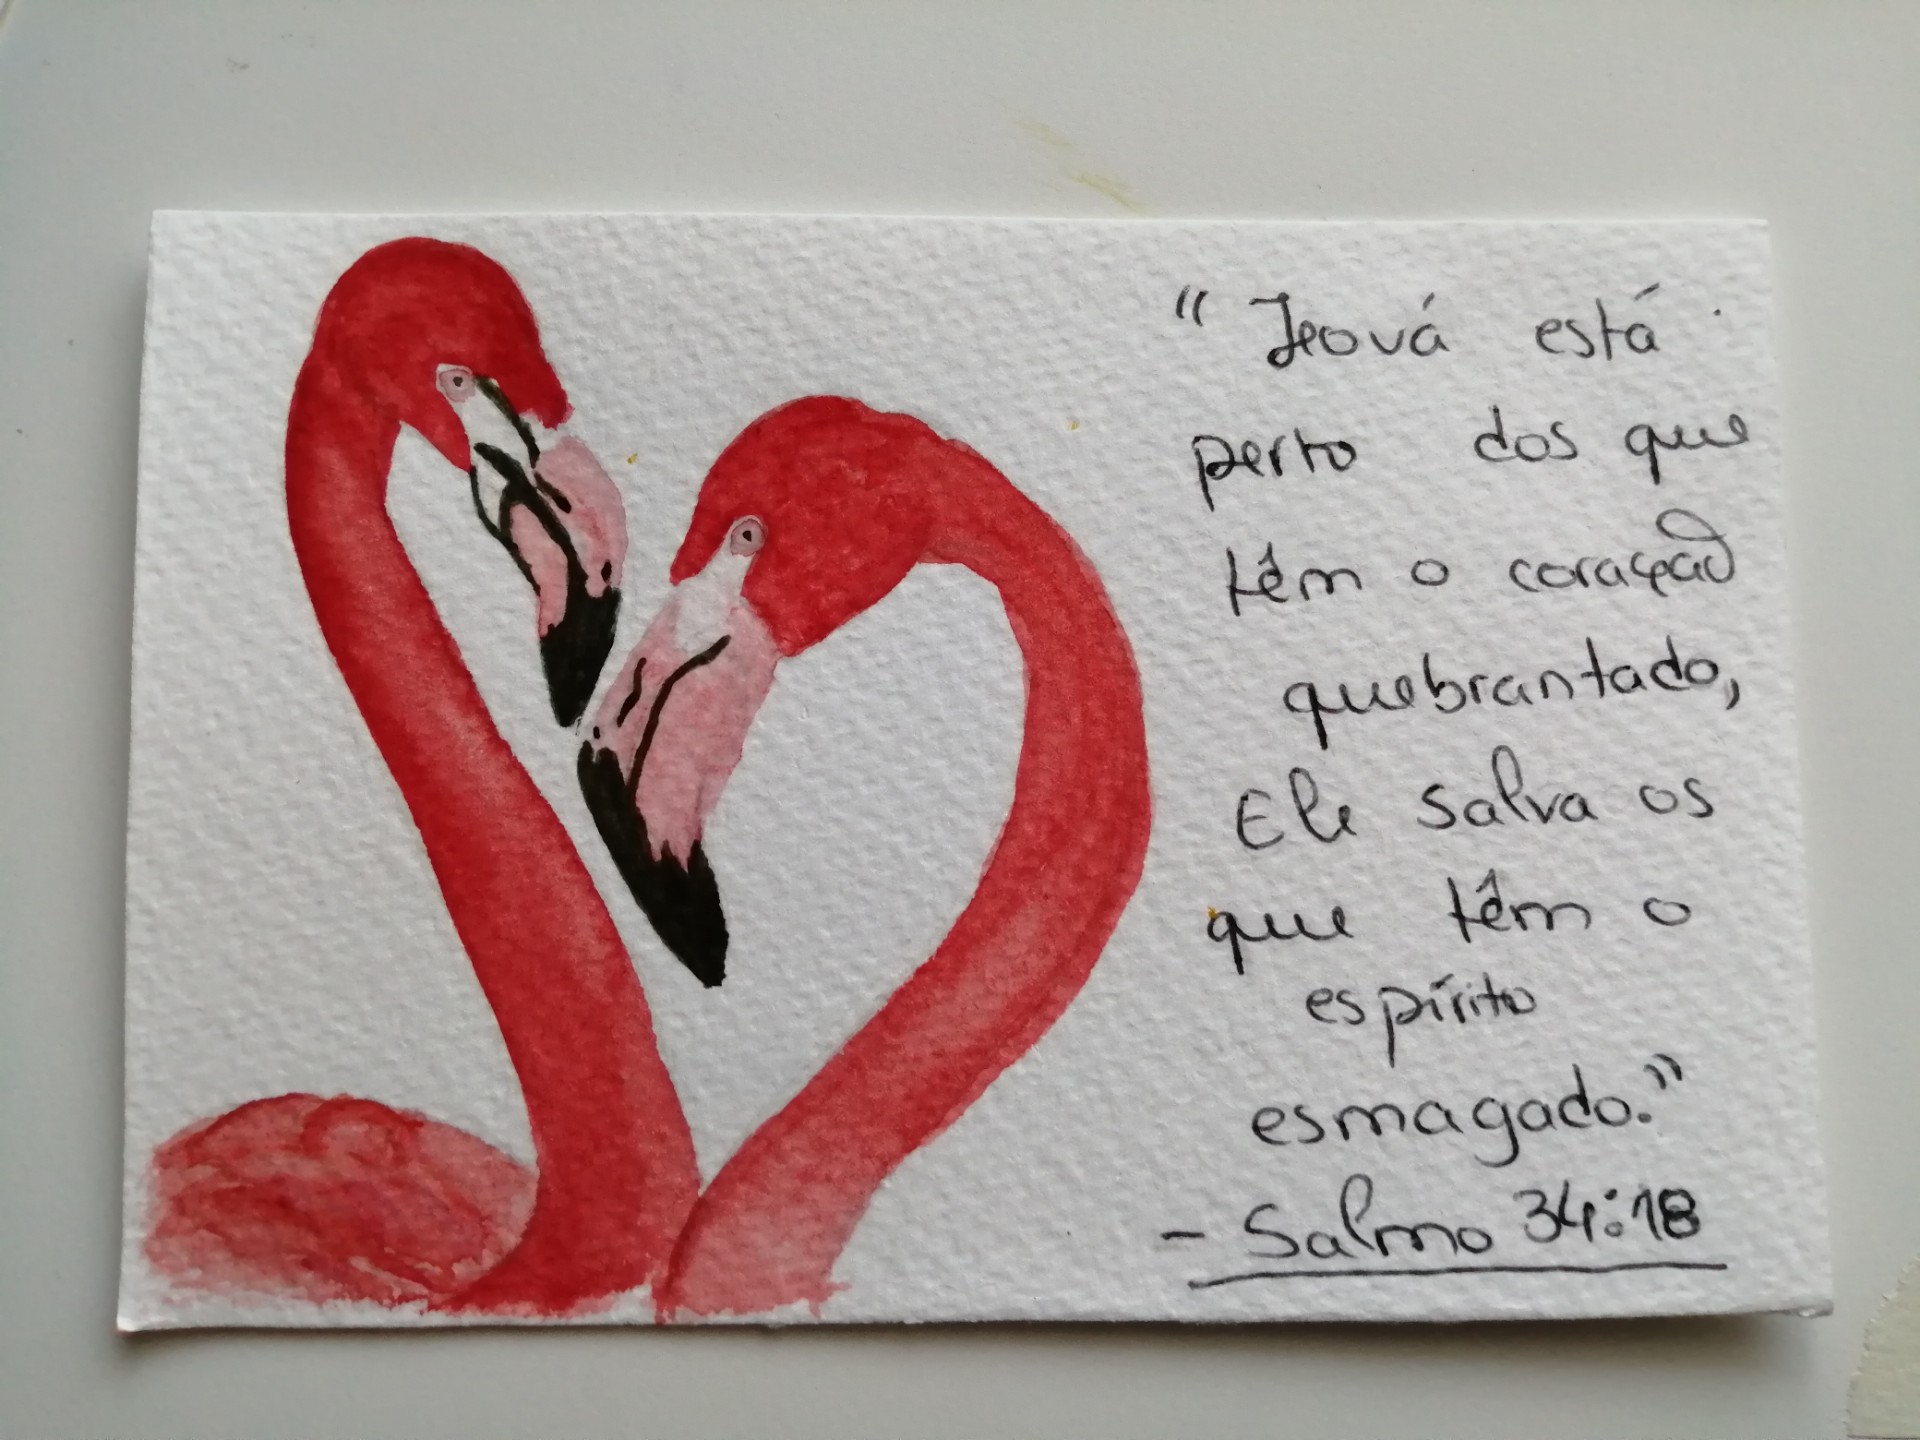 “Jeová está
perto dos que
têm o coração
quebrantado,
Ele salva os
que têm o
espírito
esmagado.”
- Salmo 34:18